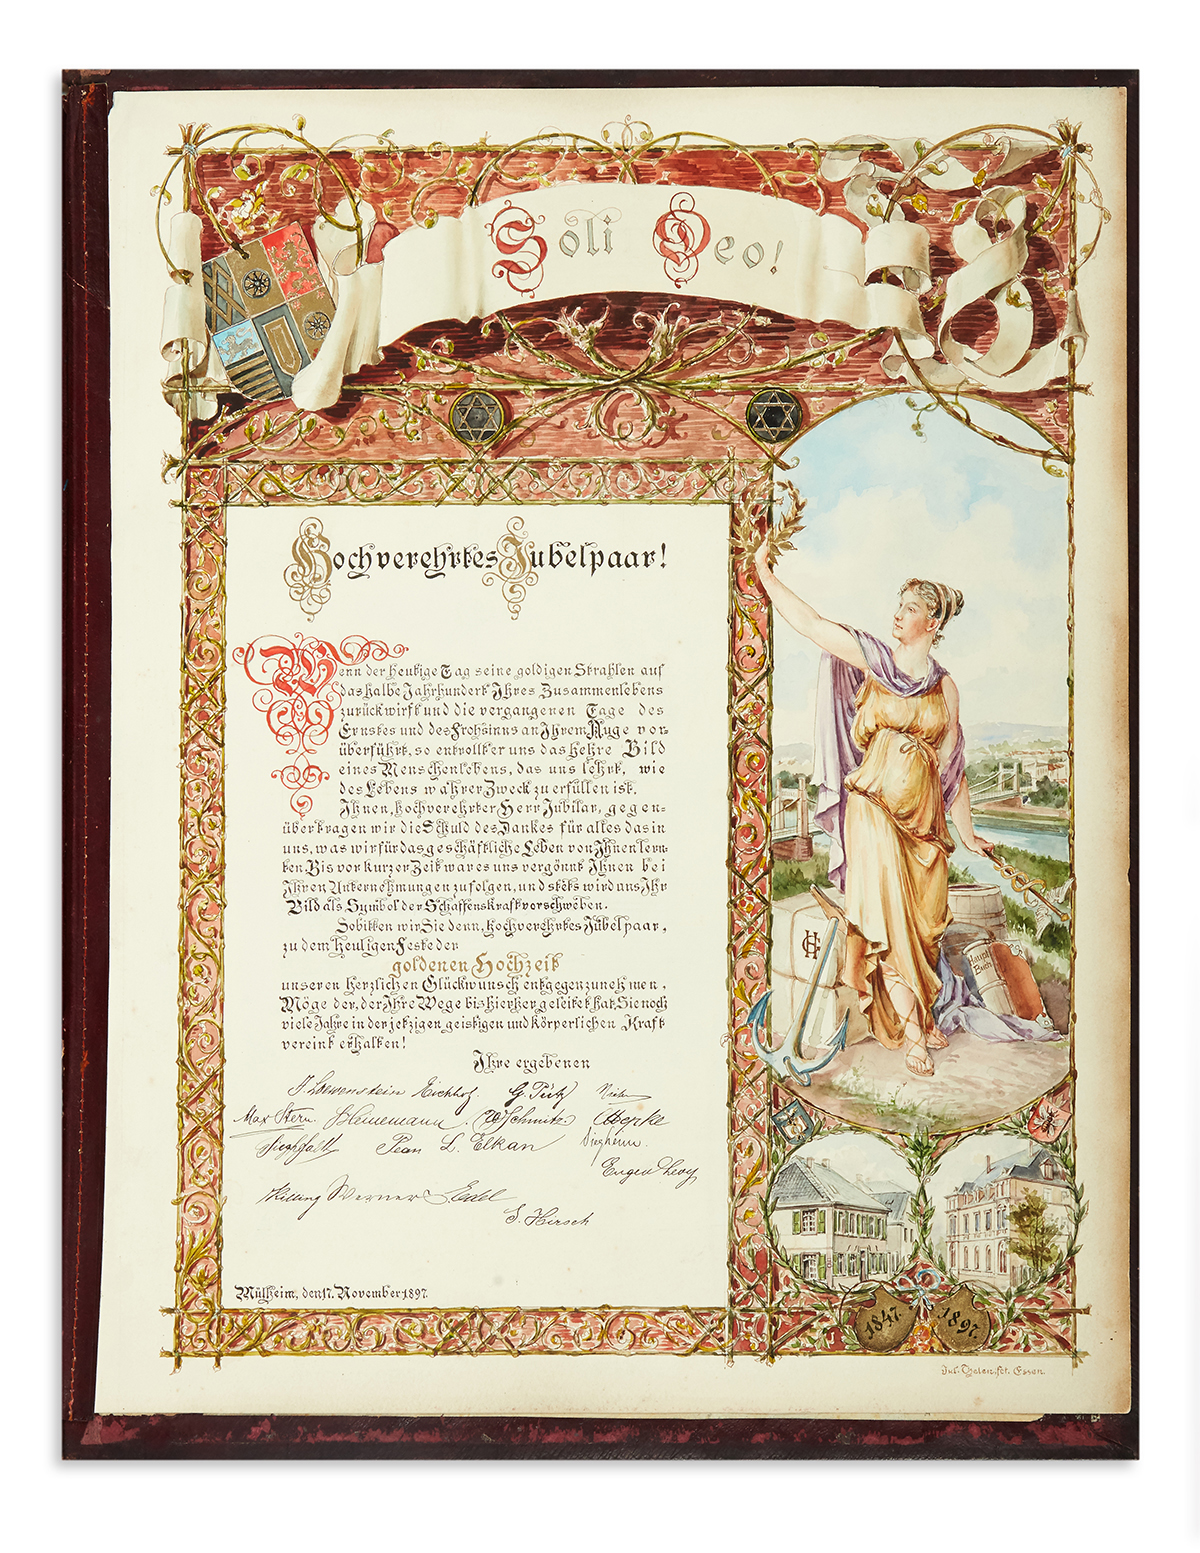 Soli Deo!
Hochverehrtes Jubelpaar!
Wenn der heutige Tag seine goldigen Strahlen auf
das halbe Jahrhundert Ihres Zusammenlebens
zurückwirft und die vergangenen Tage des
Ernstes und des Frohsinns an Ihrem Auge vor-
überführt, so entrollt er uns das hehre Bild
eines Menschenlebens, das uns lehrt, wie
des Lebens wahrer Zweck zu erfüllen ist.
Ihnen, hochverehrter Herr Jubilar, gegen=
über tragen wir die Schuld des Dankes für alles das in
uns, was wir für das geschäftliche Leben von Ihnen lern-
ten. Bis vor kurzer Zeit war es uns vergönnt Ihnen bei
Ihren Unternehmungen zu folgen, und stets wird uns Ihr
Bild als Symbol der Schaffenskraft vorschweben.
So bitten wir Sie denn, hochverehrtes Jubelpaar,
zu dem heutigen Feste der
goldenen Hochzeit
unseren herzlichen Glückwunsch entgegenzunehmen.
Möge der, der Ihre Wege bis hierher geleitet hat, Sie noch
viele Jahre in der jetzigen geistigen und körperlichen Kraft
vereint erhalten!
Ihre ergebenen
J. Loewenstein Eichhof. G. Tütz
Max Stern. Heinemann W Schmitz Woepke
Jean L. Elkan
Eugen Levy
Killing Werner S. Edel
S. Hirsch
Mülheim, den 17. November 1897.
HG
Haupt
Buch
1847. 1897.
Jul. Thelen, fct. Essen.